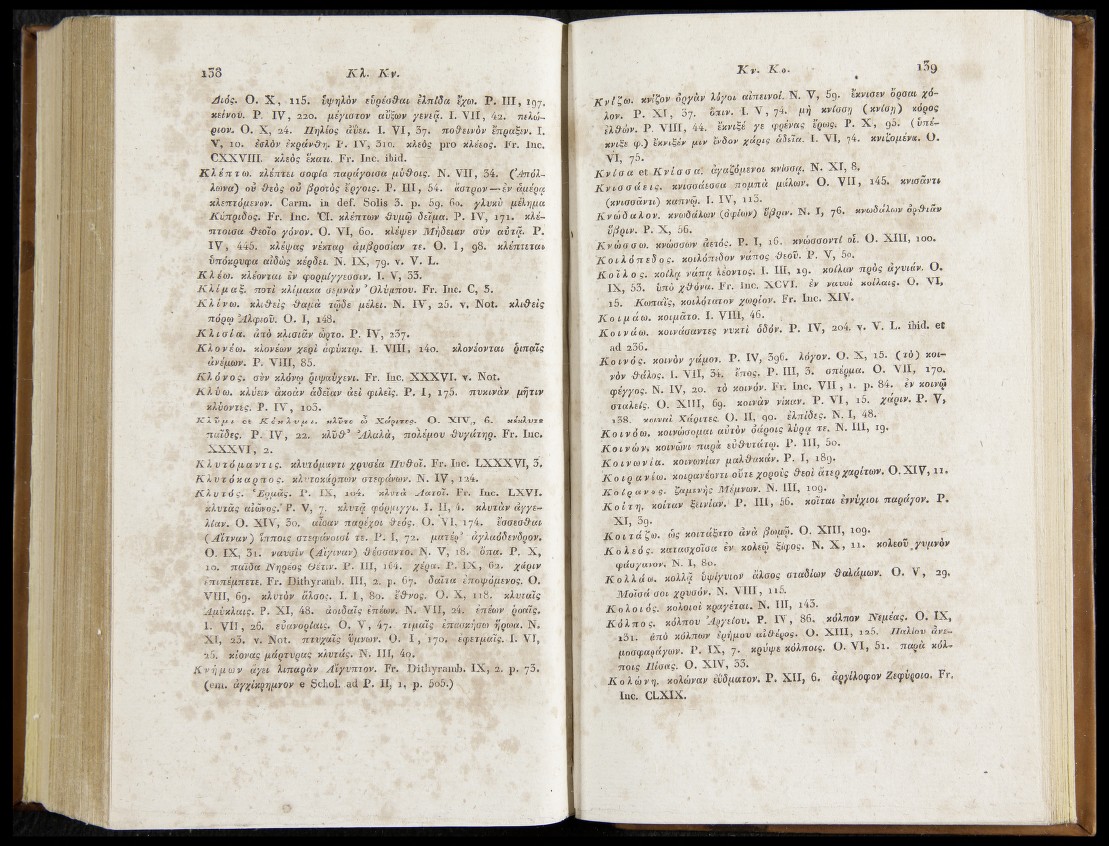 138 Κλ. Κν.
Διός. O. X, 115. ὑψηλὸν εὑρέσθαι ἐλπίδα ἔχω. P. III, 197.
κείνου. P. IV, 220. μέγιστον αὔξων γενεᾷ. I. VII, 42. πελώ-
ριον. O. X, 24. Πηλέος ἀΰει. I. VI, 37. ποθεινὸν ἔπραξιν. I.
V, 10. ἐσλὸν ἐκράνθη. P. IV, 310. κλεὸς pro κλέεος. Fr. Inc.
CXXVIII. κλεὸς ἕκατι. Fr. Inc. ibid.
Κλέπτω. κλέπτει σοφία παράγοισα μύθοις. N. VII, 34. (Ἀπόλ-
λωνα) οὐ θεὸς οὐ βροτὸς ἔργοις. P. III, 54. ἄστρον — ἐν ἀμέρᾳ
κλεπτόμενον. Carm. in def. Solis 3. p. 59. 60. γλυκὺ μέλημα
Κύπριδος. Fr. Inc. CI. κλέπτων θυμῷ δεῖμα. P. IV, 171. κλέ-
πτοισα θεοῖο γόνον. O. VI, 60. κλέψεν Μήδειαν σὺν αὐτᾷ. P.
IV, 445. κλέψας νέκταρ ἀμβροσίαν τε. O. I, 98. κλέπτεται
ὑπόκρυφα αἰδὼς κέρδει. N. IX, 79. v. V. L.
Κλέω. κλέονται ἐν φορμίγγεσσιν. I. V, 33.
Κλίμαξ. ποτὶ κλίμακα σεμνὰν Ὀλύμπου. Fr. Inc. C, 5.
Κλίνω. κλιθεὶς θαμὰ τῷδε μέλει. N. IV, 25. v. Not. κλιθεὶς
πόρῳ Ἀλφιοῦ. O. I, 148.
Κλισία. ἀπὸ κλισιᾶν ὦρτο. P. IV, 237.
Κλονέω. κλονέων χερὶ ἀφύκτῳ. I. VIII, 140. κλονέονται ῥιπαῖς
ἀνέμων. P. VIII, 85.
Κλόνος. σὺν κλόνῳ ῥιψαύχενι. Fr. Inc. XXXVI. v. Not.
Κλύω. κλύειν ἀκοὰν ἁδεῖαν ἀεὶ φιλεῖς. P. I, 175. πυκινὰν μῆτιν
κλύοντες. P. IV, 103.
Κλῦμι et Κέκλυμι. κλῦτε ὦ Χάριτες. O. XIV, 6. κέκλυτε
παῖδες. P. IV, 22. κλῦθ' Ἀλαλὰ, πολέμου θυγάτηρ. Fr. Inc.
XXXVI, 2.
Κλυτόμαντις. κλυτόμαντι χρυσέα Πυθοῖ. Fr. Inc. LXXXVI, 3.
Κλυτόκαρπος. κλυτοκάρπων στεφάνων. N. IV, 124.
Κλυτός. Ἑρμᾶς. P. IX, 104. κλυτὰ Λατοῖ. Fr. Inc. LXVI.
κλυτὰς αἰῶνος. P. V, 7. κλυτᾷ φόρμιγγι. I. II, 4. κλυτὰν ἀγγε-
λίαν. O. XIV, 30. αἶσαν παρέχοι θεός. O. VI, 174. ἔσσεσθαι
(Αἴτναν) ἵπποις στεφάνοισί τε. P. I, 72. ματέρ' ἀγλαόδενδρον.
O. IX, 31. ναυσὶν (Αἴγιναν) θέσσαντο. N. V, 18. ὄπα. P. X,
10. παῖδα Νηρέος Θέτιν. P. III, 164. χέρα. P. IX, 62. χάριν
ἐπιπέμπετε. Fr. Dithyramb. III, 2. p. 67. δαῖτα ἐποψόμενος. O.
VIII, 69. κλυτὸν ἄλσος. I. I, 80. ἔθνος. O. X, 118. κλυταῖς
Ἀμύκλαις. P. XI, 48. ἀοιδαῖς ἐπέων. N. VII, 24. ἐπέων ῥοαῖς.
I. VII, 26. εὐανορίαις. O. V, 47. τιμαῖς ἐπασκήσω ἥρωα. N.
XI, 23. v. Not. πτυχαῖς ὕμνων. O. I, 170. ἐφετμαῖς. I. VI,
25. κίονας μάρτυρας κλυτάς. N. III, 49.
Κνήμων ἄγει λιπαρὰν Αἴγυπτον. Fr. Dithyramb. IX, 2. p. 73.
(em. ἀγχίκρημνον e Schol. ad P. II, 1. p. 505.)
Κν. Κο. 139
Κνίζω. κνίζον ὀργὰν λόγοι αἰπεινοί. N. V, 59. ἔκνισεν ὄρσαι χό-
λον. P. XI, 37. ὄπιν. I. V, 74. μὴ κνίσσῃ (κνίσῃ) κόρος
ἐλθών. P. VIII, 44. ἔκνιξέ γε φρένας ἔρως. P. X, 93. (ὑπέ-
κνιξε φ.) ἔκνιξέν μιν ἔνδον χάρις ἁδεῖα. I. VI, 74. κνιζομένα. O.
VI, 75.
Κνίσα et Κνίσσα. ἀγαζόμενοι κνίσσᾳ. N. XI, 8.
Κνισσάεις. κνισσάεσσα πομπὰ μάλων. O. VII, 145. κνισᾶντι
(κνισσᾶντι) καπνῷ. I. IV, 113.
Κνώδαλον. κνωδάλων (ὀφίων) ὕβριν. N. I, 76. κνωδάλων ὀρθιᾶν
ὕβριν. P. X, 56.
Κνώσσω. κνώσσων ἀετός. P. I, 16. κνώσσοντί οἱ. O. XIII, 100.
Κοιλόπεδος. κοιλόπεδον νάπος θεοῦ. P. V, 50.
Κοῖλος. κοίλᾳ νάπᾳ λέοντος. I. III, 19. κοίλαν πρὸς ἀγυιάν. O.
IX, 53. ὑπὸ χθόνα. Fr. Inc. XCVI. ἐν ναυσὶ κοίλαις. O. VI,
15. Κωπαῒς, κοιλότατον χωρίον. Fr. Inc. XIV.
Κοιμάω. κοιμᾶτο. I. VIII, 46.
Κοινάω. κοινάσαντες νυκτὶ ὁδόν. P. IV, 204. v. V. L. ibid. et
ad 236.
Κοινός. κοινὸν γάμον. P. IV, 396. λόγον. O. X, 15. (τὸ) κοι-
νὸν θάλος. I. VII, 34. ἔπος. P. III, 3. σπέρμα. O. VII, 170.
φέγγος. N. IV, 20. τὸ κοινόν. Fr. Inc. VII, 1. p. 84. ἐν κοινῷ
σταλείς. O. XIII, 69. κοινὰν νίκαν. P. VI, 15. χάριν. P. V,
138. κοιναὶ Χάριτες. O. II, 90. ἐλπίδες. N. I, 48.
Κοινόω. κοινώσομαι αὐτὸν ὀάροις λύρᾳ τε. N. III, 19.
Κοινών. κοινῶνι παρὰ εὐθυτάτῳ. P. III, 50.
Κοινωνία. κοινωνίαν μαλθακάν. P. I, 189.
Κοιρανέω. κοιρανέοντι οὔτε χοροὺς θεοὶ ἄτερ χαρίτων. O. XIV, 11.
Κοίρανος. ζαμενὴς Μέμνων. N. III, 109.
Κοίτη. κοίταν ξεινίαν. P. III, 56. κοῖται ἐννύχιοι παράγον. P.
XI, 39.
Κοιτάζω. ὡς κοιτάξατο ἀνὰ βωμῷ. O. XIII, 109.
Κολεός. κατασχοῖσα ἐν κολεῷ ξίφος. N. X, 11. κολεοῦ γυμνὸν
φάσγανον. N. I, 80.
Κολλάω. κολλᾷ ὑψίγυιον ἄλσος σταδίων θαλάμων. O. V, 29.
Μοῖσά σοι χρυσόν. N. VIII, 115.
Κολοιός. κολοιοὶ κραγέται. N. III, 143.
Κόλπος. κόλπου Ἀργείου. P. IV, 86. κόλπον Νεμέας. O. IX,
131. ἀπὸ κόλπων ἐρήμου αἰθέρος. O. XIII, 125. Παλίου ἀνε-
μοσφαράγων. P. IX, 7. κρύψε κόλποις. O. VI, 51. παρὰ κόλ-
ποις Πίσας. O. XIV, 33.
Κολώνη. κολώναν εὐδματον. P. XII, 6. ἀργίλοφον Ζεφύροιο. Fr.
Inc. CLXIX.